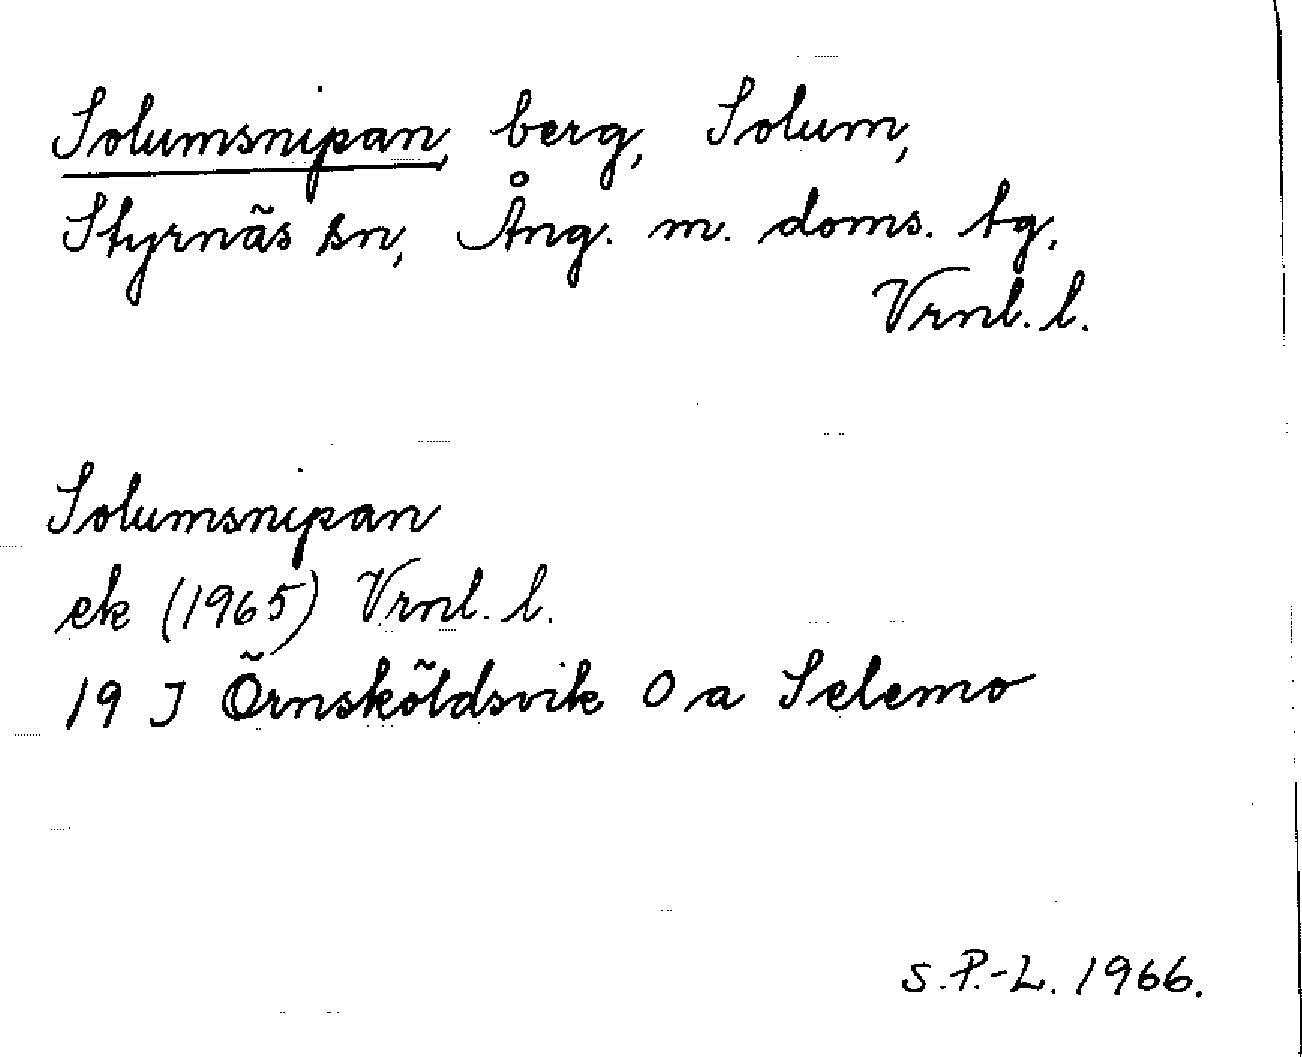 Solumsnipan, berg, Solum,
Styrnäs sn, Ång. m. doms. tg.
Vrnl. l.
Solumsnipan
ek (1965) Vrnl. l.
19 J Örnsköldsvik 0 a Selemo
S.P.-L. 1966.